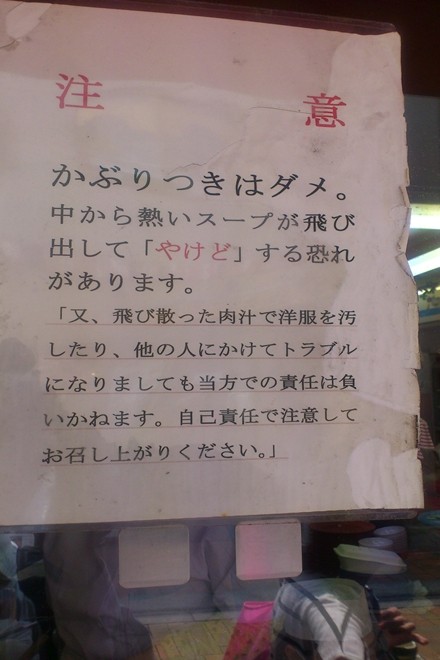 注意
かぶりつきはダメ。
中から熱いスープが飛び
出して「やけど」する恐れ
があります。
「又、飛び散った肉汁で洋服を汚
したり、他の人にかけてトラブル
になりましても当方での責任は負
いかねます。自己責任で注意して
お召し上がりください。」